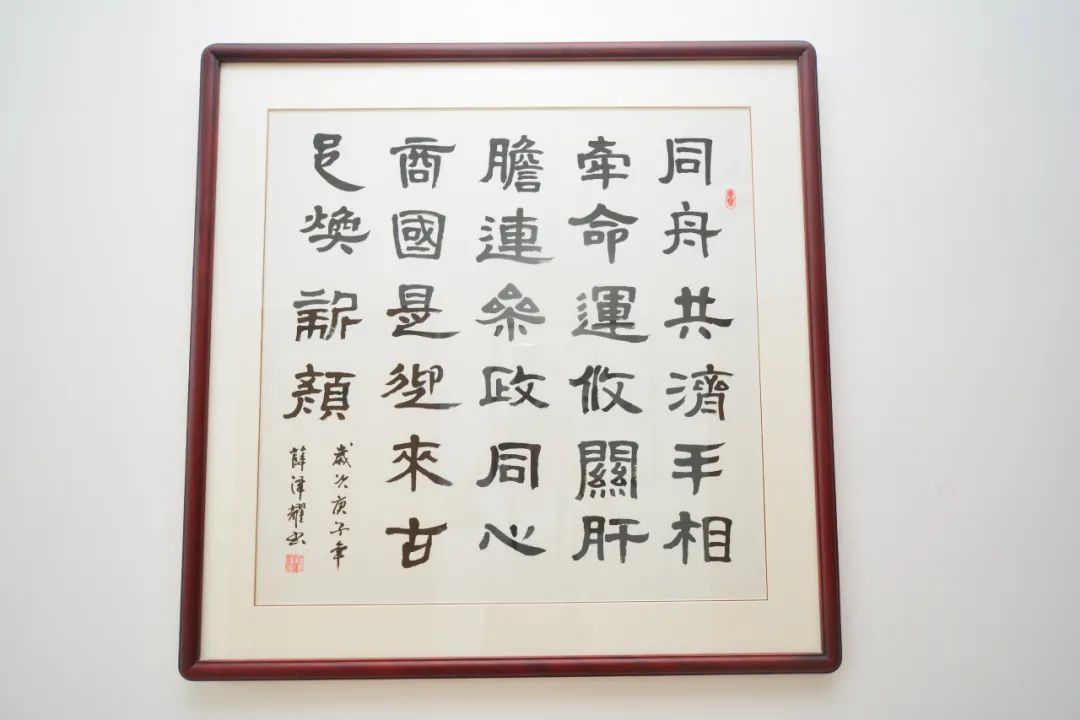 同舟共濟手相
牽命運攸關肝
膽連參政同心
商國是迎來古
邑煥新顏
歲次庚子年
薛泽耀书